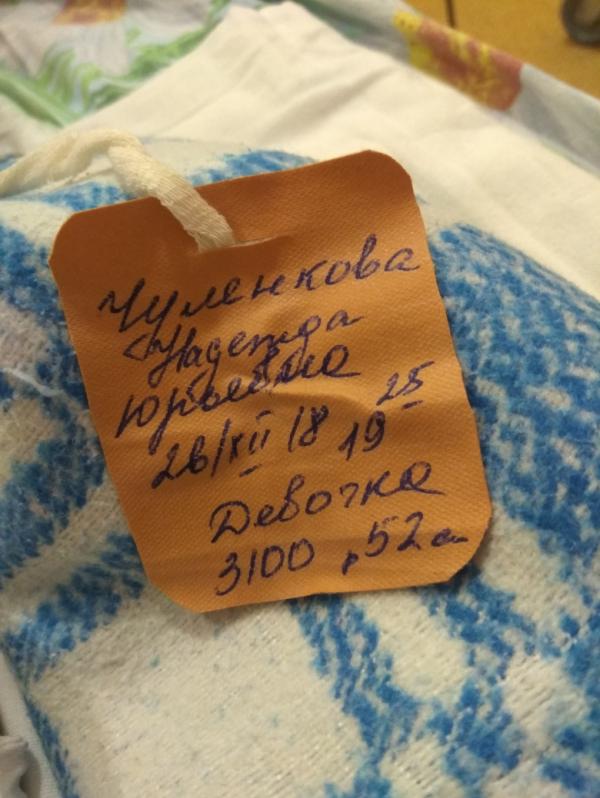 Чуленкова
Надежда
Юрьевна
26/XII 18 19 25
Девочка
3100 р 52 см